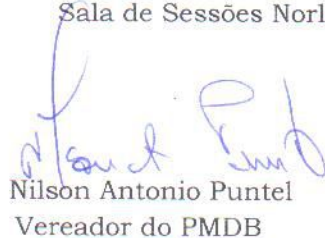 Sala de Sessões Norl
Nilson Antonio Puntel
Vereador do PMDB